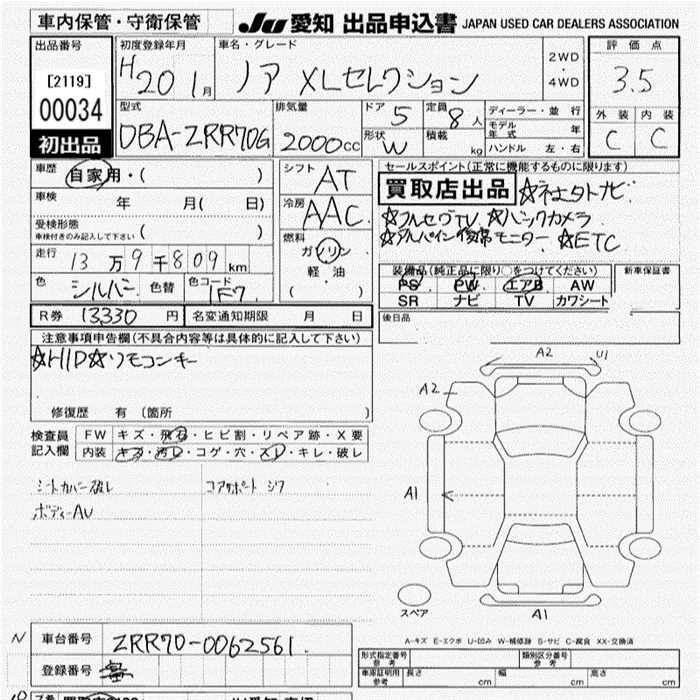 車内保管・守衛保管 JU 愛知 出品申込書 JAPAN USED CAR DEALERS ASSOCIATION
出品番号 初度登録年月 車名・グレード 2WD・4WD 評価点
[2119] H20 1月 ノア XLセレクション 3.5
00034 型式 排気量 ドア 5 定員 8人 ディーラー・並行 外装 内装
初出品 DBA-ZRR70G 2000cc 形状 W 積載 kg モデル年式 年 C C
ハンドル 左・右
車歴 自家用・( ) シフト AT セールスポイント(正常に機能するものに限ります)
車検 年 月( 日) 冷房 AAC 買取店出品
受検形態 ( ) ☆フルセグTV ☆バックカメラ
車検付きのみ記入して下さい 燃料 ガソリン
走行 13万9千809km 軽油 ☆ETC
色 シルバー 色替 色コード 1F7 ・( ) 装備品(純正品に限り○をつけてください) 新車保証書
PS PW エアB AW
SR ナビ TV カワシート
R券 13330円 名変通知期限 月 日 後日品
注意事項申告欄(不具合内容等は具体的に記入して下さい)
☆HID☆リモコンキー
修復歴 有 (箇所 )
検査員記入欄 FW キズ・飛石・ヒビ割・リペア跡・X要
内装 キズ・汚レ・コゲ・穴・スレ・キレ・破レ
シートカバー破レ コアサポートシワ
ボディーAU
A2 U1
A2
A1
スペア A1
車台番号 ZRR70-0062561
A-キズ E-エクボ U-凹み W-補修跡 S-サビ C-腐食 XX-交換済
登録番号 形式指定番号 参考 類別区分番号 参考
車庫証明用 参考 長さ cm 幅 cm 高さ cm